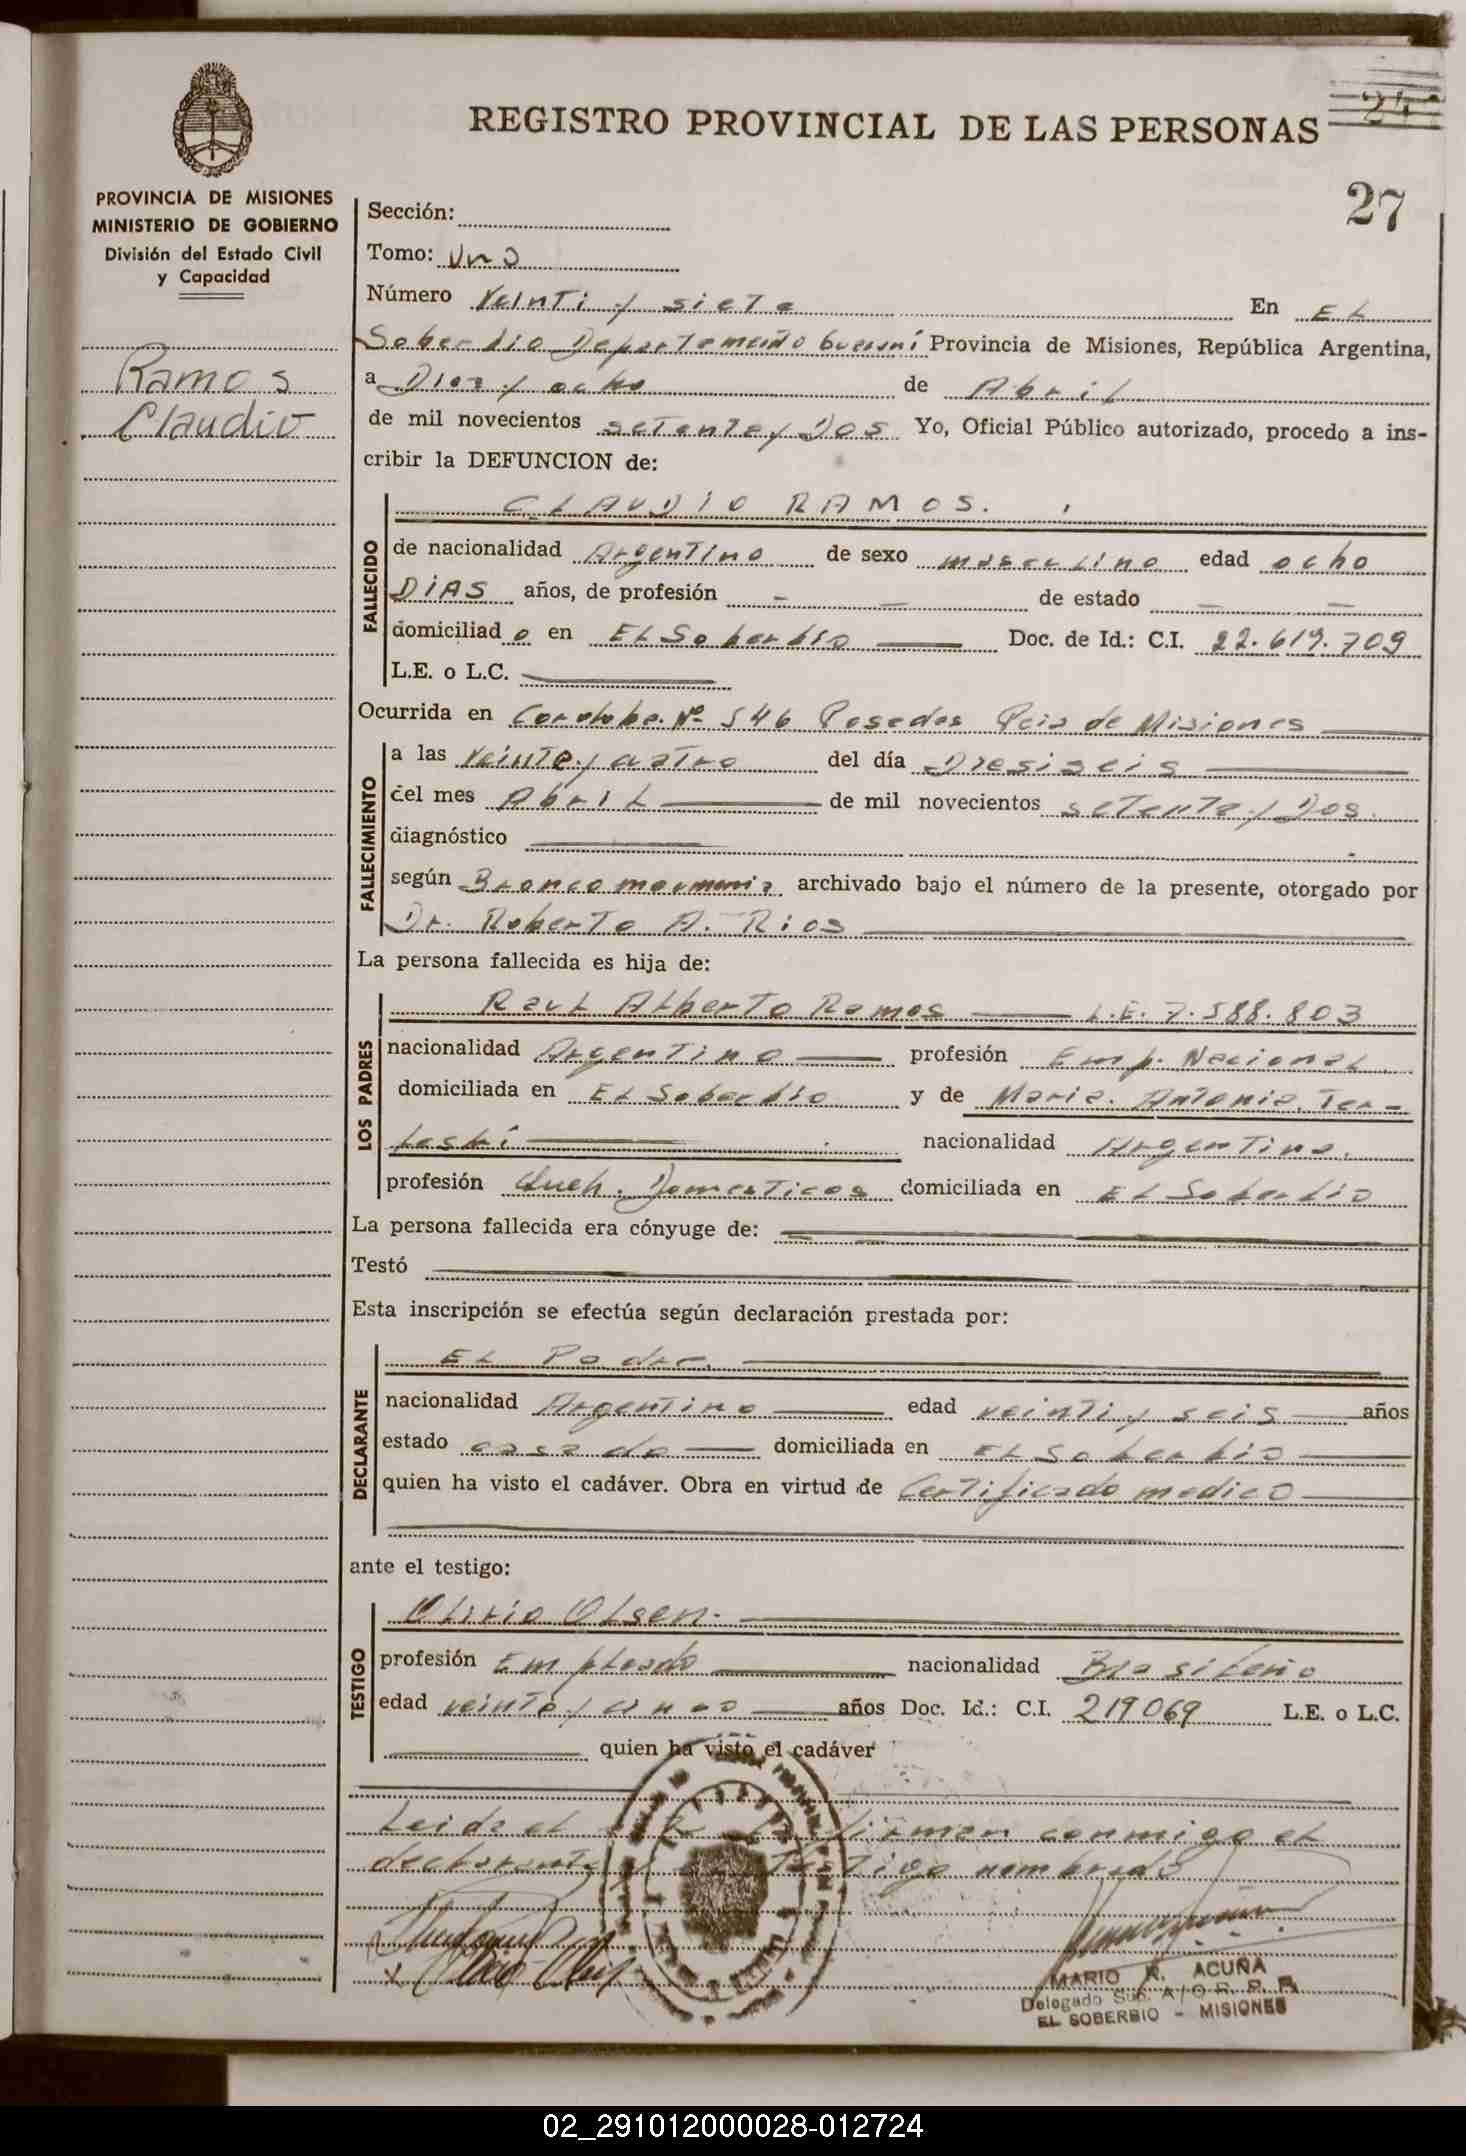 24
REGISTRO PROVINCIAL DE LAS PERSONAS
27
PROVINCIA DE MISIONES
MINISTERIO DE GOBIERNO
División del Estado Civil
y Capacidad
Ramos
Claudio
Sección:
Tomo: Uno
Número Veinti y siete En EL
Soberbio Departamento Guaraní Provincia de Misiones, República Argentina,
a Diez y ocho de Abril
de mil novecientos setenta y Dos Yo, Oficial Público autorizado, procedo a ins-
cribir la DEFUNCION de:
CLAUDIO RAMOS.
FALLECIDO
de nacionalidad Argentino de sexo masculino edad ocho
DIAS años, de profesión - - de estado - -
domiciliad o en EL Soberbio Doc. de Id.: C.I. 22.619.709
L.E. o L.C.
Ocurrida en Cordoba. Nº 546 Posadas Pcia de Misiones
FALLECIMIENTO
a las veinte y cuatro del día Diesiseis
del mes Abril de mil novecientos setenta y Dos.
diagnóstico
según archivado bajo el número de la presente, otorgado por
Dr. Roberto A. Rios
La persona fallecida es hija de:
LOS PADRES
Raul Alberto Ramos L.E. 7.588.803
nacionalidad Argentino profesión Emp. Nacional
domiciliada en EL Soberbio y de Maria. Antonia. Ter-
leski nacionalidad Argentina.
profesión Queh. Domesticos domiciliada en EL Soberbio
La persona fallecida era cónyuge de:
Testó
Esta inscripción se efectúa según declaración prestada por:
DECLARANTE
EL Padre.
nacionalidad Argentino edad veinti y seis años
estado casado domiciliada en EL Soberbio
quien ha visto el cadáver. Obra en virtud de Certificado medico
ante el testigo:
TESTIGO
Olirio Olsen.
profesión Empleado nacionalidad Brasileño
edad veinte y cinco años Doc. Id.: C.I. 219069 L.E. o L.C.
quien ha visto el cadáver
Leida el firman conmigo el
declarante testigo nombrado
MARIO R. ACUÑA
Delegado Sub. A/O R. P. P.
EL SOBERBIO - MISIONES
02_291012000028-012724